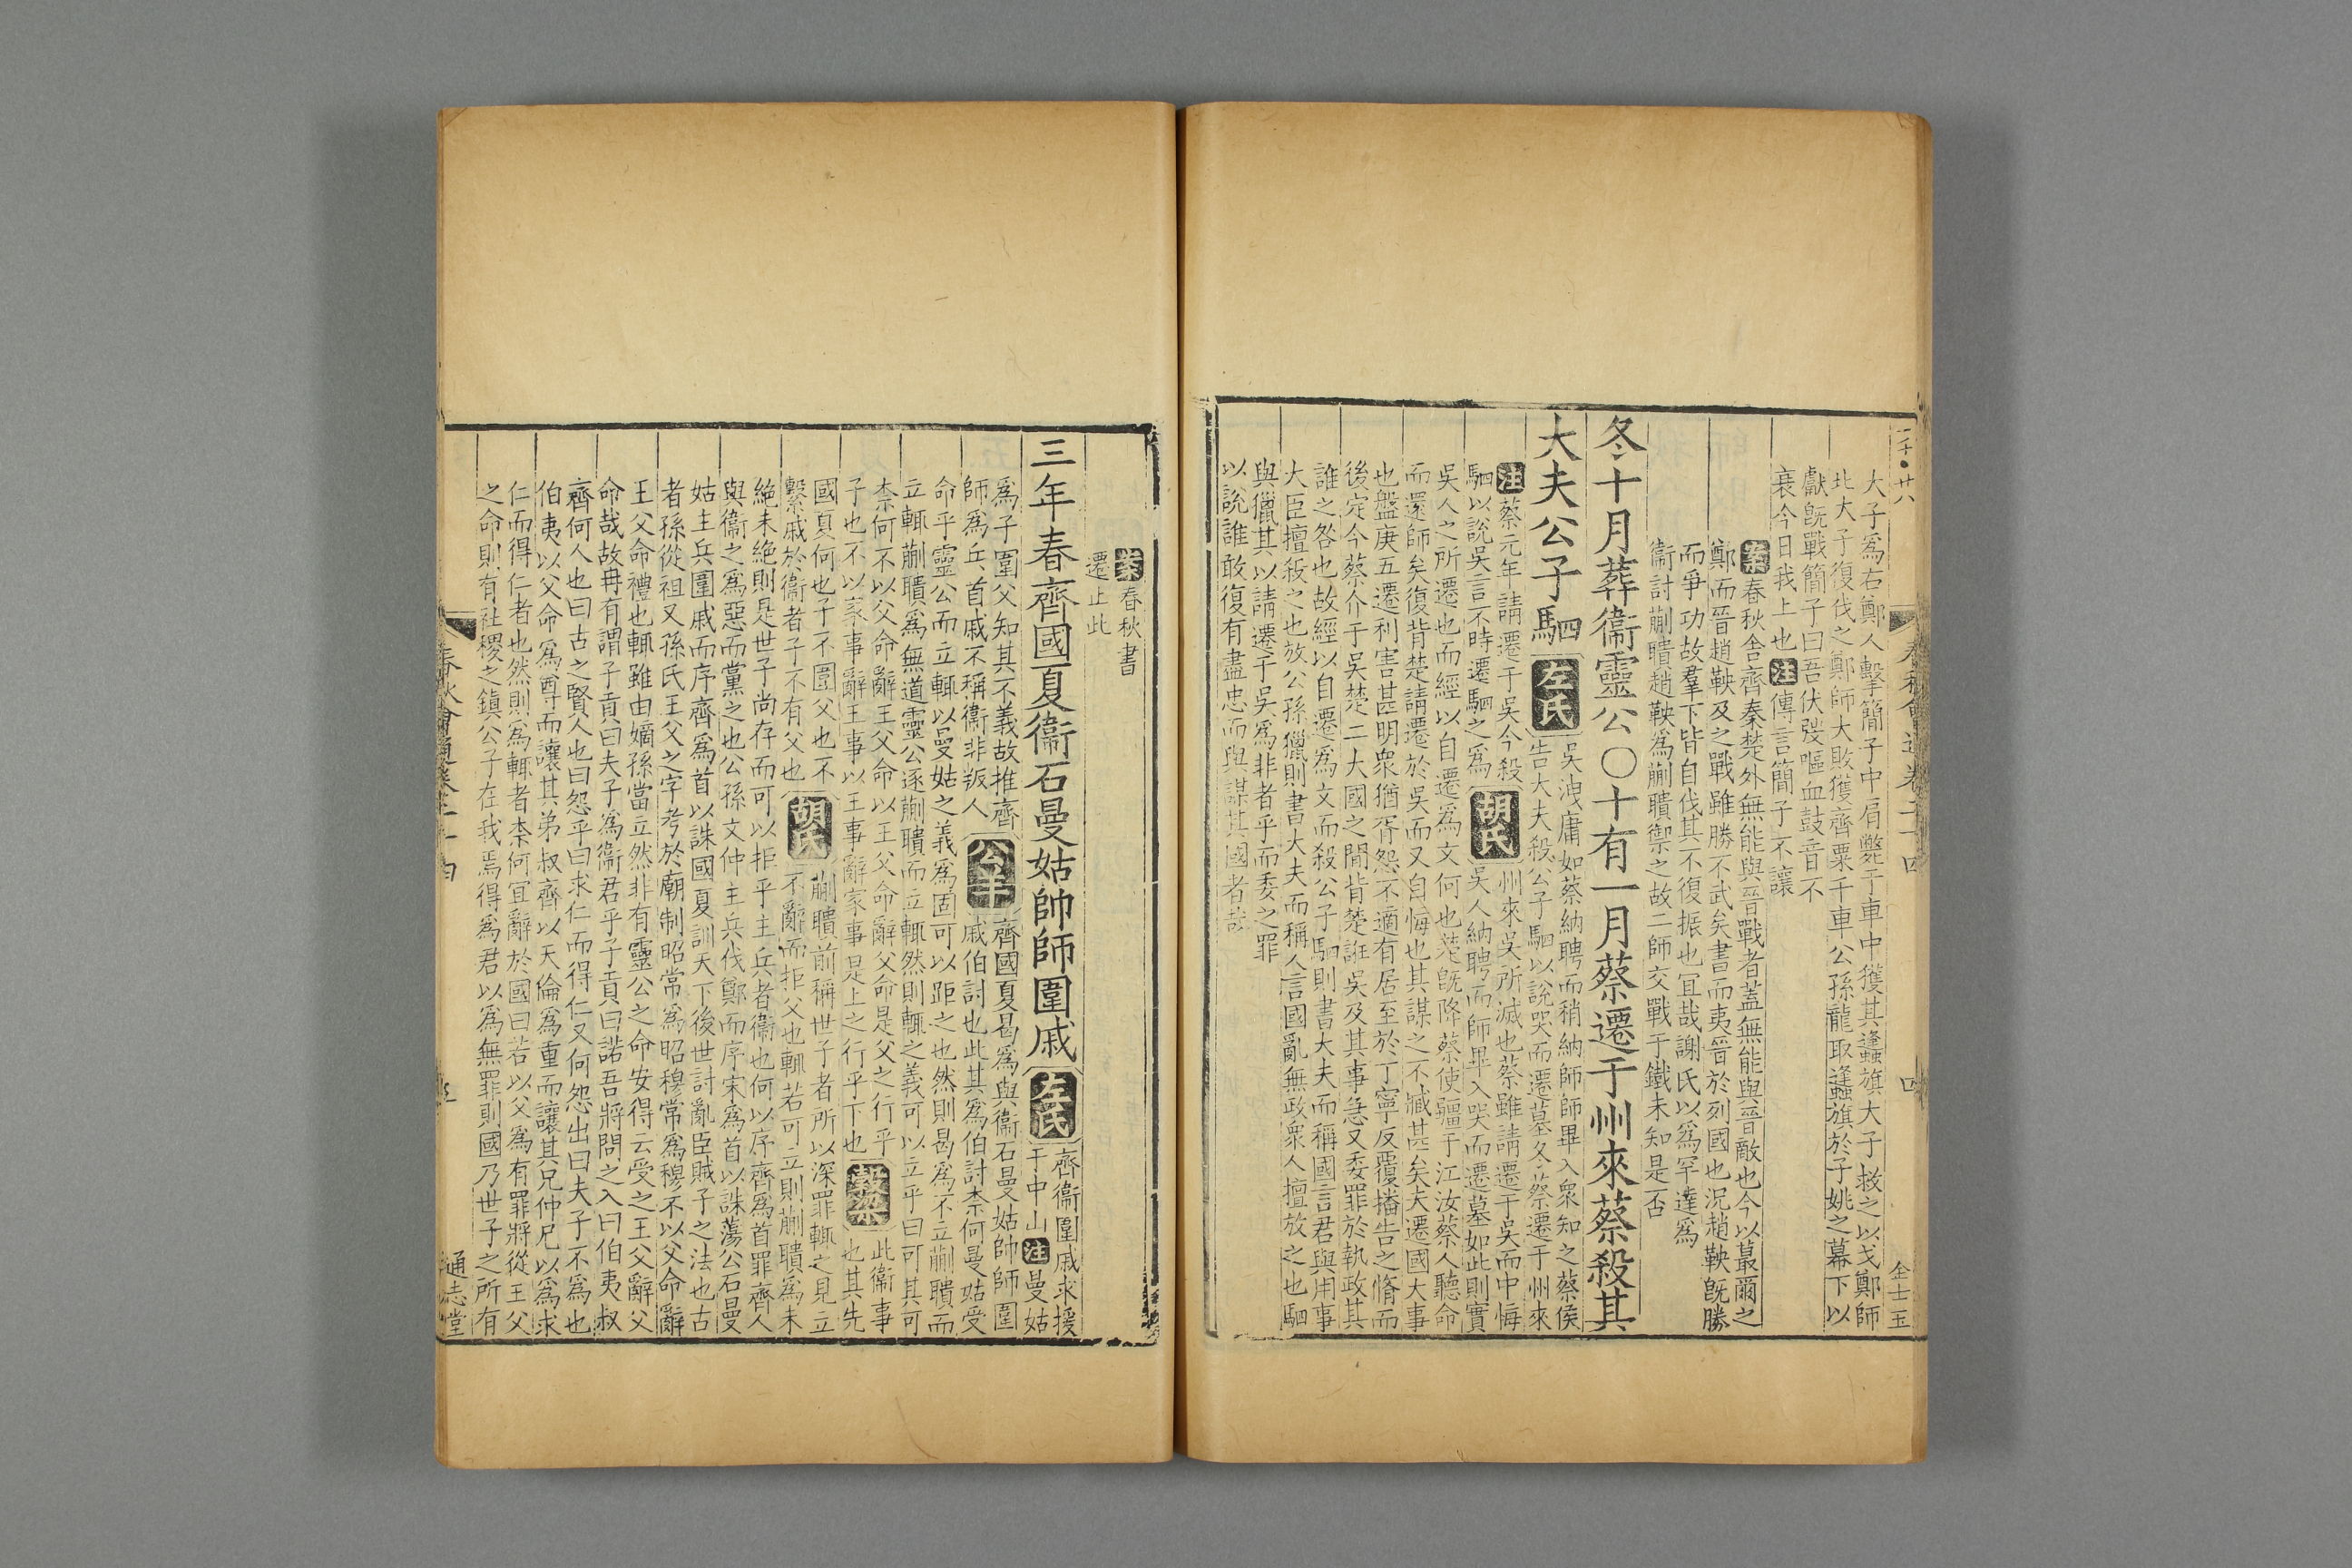 二十·廿八
春秋會通卷二十四
四
大子為右鄭人擊簡子中肩斃于車中獲其蠭旗大子救之以戈鄭師
北大子復伐之鄭師大敗獲齊粟千車公孫龍取蠭旗於子姚之幕下以
獻旣戰簡子曰吾伏弢嘔血鼓音不
衰今日我上也注傳言簡子不讓
案春秋舍齊秦楚外無能與晉戰者蓋無能與晉敵也今以蕞爾之
鄭而晉趙鞅及之戰雖勝不武矣書而夷晉於列國也況趙鞅旣勝
而爭功故羣下皆自伐其不復振也宜哉謝氏以為罕達為
衞討蒯聵趙鞅為蒯聵禦之故二師交戰于鐵未知是否
冬十月葬衞靈公○十有一月蔡遷于州來蔡殺其
大夫公子駟左氏
吳洩庸如蔡納聘而稍納師師畢入衆知之蔡侯
告大夫殺公子駟以說哭而遷墓冬蔡遷于州來
注蔡元年請遷于吳今殺
駟以說吳言不時遷駟之為
胡氏
州來吳所滅也蔡雖請遷于吳而中悔
吳人納聘而師畢入哭而遷墓如此則實
吳人之所遷也而經以自遷為文何也楚旣降蔡使疆于江汝蔡人聽命
而還師矣復背楚請遷於吳而又自悔也其謀之不臧甚矣夫遷國大事
也盤庚五遷利害甚明衆猶胥怨不適有居至於丁寧反覆播告之脩而
後定今蔡介于吳楚二大國之間背楚誑吳及其事急又委罪於執政其
誰之咎也故經以自遷為文而殺公子駟則書大夫而稱國言君與用事
大臣擅殺之也放公孫獵則書大夫而稱人言國亂無政衆人擅放之也駟
與獵其以請遷于吳為非者乎而委之罪
以說誰敢復有盡忠而與謀其國者哉
案春秋書
遷止此
三年春齊國夏衞石曼姑帥師圍戚左氏
齊衞圍戚求援
于中山注曼姑
為子圍父知其不義故推齊
師為兵首戚不稱衞非叛人
公羊
齊國夏曷為與衞石曼姑帥師圍
戚伯討也此其為伯討柰何曼姑受
命乎靈公而立輒以曼姑之義為固可以距之也然則曷為不立蒯聵而
立輒蒯聵為無道靈公逐蒯聵而立輒然則輒之義可以立乎曰可其可
柰何不以父命辭王父命以王父命辭父命是父之行乎
子也不以家事辭王事以王事辭家事是上之行乎下也
穀梁
此衞事
也其先
國夏何也子不圍父也不
繫戚於衞者子不有父也
胡氏
蒯聵前稱世子者所以深罪輒之見立
不辭而拒父也輒若可立則蒯聵為未
絶未絶則是世子尚存而可以拒乎主兵者衞也何以序齊為首罪齊人
與衞之為惡而黨之也公孫文仲主兵伐鄭而序宋為首以誅蕩公石曼
姑主兵圍戚而序齊為首以誅國夏訓天下後世討亂臣賊子之法也古
者孫從祖又孫氏王父之字考於廟制昭常為昭穆常為穆不以父命辭
王父命禮也輒雖由嫡孫當立然非有靈公之命安得云受之王父辭父
命哉故冉有謂子貢曰夫子為衞君乎子貢曰諾吾將問之入曰伯夷叔
齊何人也曰古之賢人也曰怨乎曰求仁而得仁又何怨出曰夫子不為也
伯夷以父命為尊而讓其弟叔齊以天倫為重而讓其兄仲尼以為求
仁而得仁者也然則為輒者柰何宜辭於國曰若以父為有罪將從王父
之命則有社稷之鎮公子在我焉得為君以為無罪則國乃世子之所有
春秋會通卷二十四
通志堂